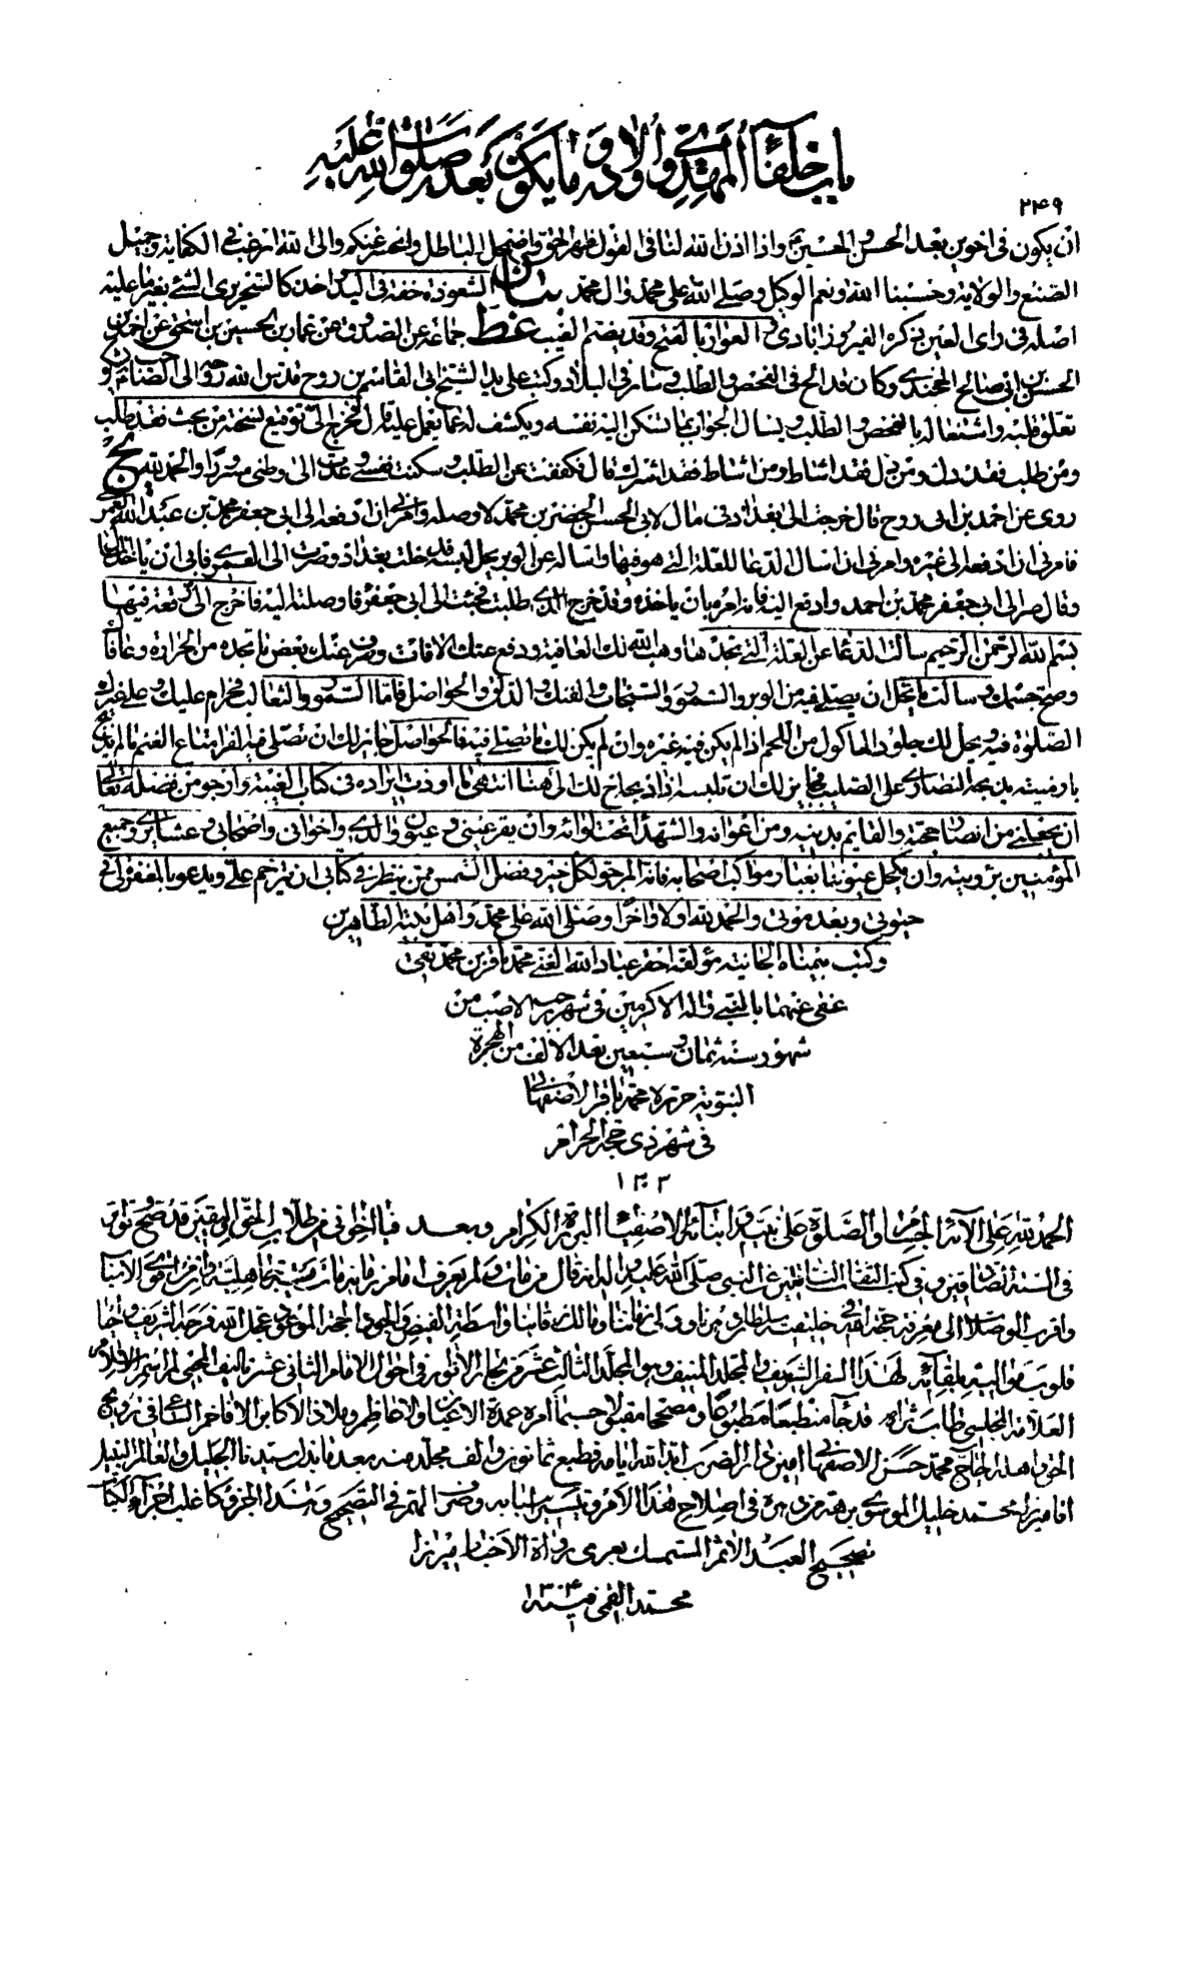 باب خلفاء المهدي و اولاده و ما يكون بعده صلوات الله عليه
۲۴۹
ان يكون في اخوين بعد الحسن و الحسين و اذا اذن الله لنا في القول ظهر الحق و اضمحل الباطل و انحسر عنكم و الى الله ارغب في الكفاية و جميل
الصنع و الولاية و حسبنا الله و نعم الوكيل و صلى الله على محمد و ال محمد بيان الشعوذة خفة في اليد و اخذ كالسحر يرى الشئ بغير ما عليه
اصله في راى العين ذكره الفيروزابادي و العوار بالفتح و قد يضم العيب غط جماعة عن الصدوق عن عمار بن الحسين بن اسحق عن احمد بن
الحسن بن ابي صالح الخجندي و كان قد الح في الفحص و الطلب و سار في البلاد و كتب على يد الشيخ ابي القاسم بن روح قدس الله روحه الى الصاحب يشكو
تعلق قلبه و اشتغاله بالفحص و الطلب و يسال الجواب بما تسكن اليه نفسه و يكشف له عما يعمل عليه قال فخرج الى توقيع نسخته من بحث فقد طلب
و من طلب فقد دل و من دل فقد اشاط و من اشاط فقد اشرك قال فكففت عن الطلب و سكنت نفسي و عدت الى وطني مسرورا و الحمد لله يج
روى عن احمد بن ابى روح قال خرجت الى بغداد في مال لابي الحسن الخضر بن محمد لاوصله و امرني ان ادفعه الى ابي جعفر محمد بن عثمان العمري
فامرني ان لا ادفعه الى غيره و امرني ان اسال الدعا للعلة التي هو فيها و اساله عن الوبر يحل لبسه فدخلت بغداد و صرت الى العمري فابى ان ياخذ المال
و قال صر الى ابي جعفر محمد بن احمد و ادفع اليه فانه امره بان ياخذه و قد خرج الذي طلبت فجئت الى ابي جعفر فاوصلته اليه فاخرج الى رقعة فيها
بسم الله الرحمن الرحيم سالت الدعا عن العلة التي تجدها و وهب الله لك العافية و دفع عنك الافات و صرف عنك بعض ما تجده من الحرارة و عافاك
و صح جسمك و سالت ما يحل ان يصلى فيه من الوبر و السمور و السنجاب و الفنك و الدلق و الحواصل فاما السمور و الثعالب فحرام عليك و على غيرك
الصلوة فيه و يحل لك جلود الماكول من اللحم اذا لم يكن فيه غيره و ان لم يكن لك ما تصلي فيه فالحواصل جايز لك ان تصلي فيه الفرا متاع الغنم ما لم يذبح
بارمينية يذبحه النصارى على الصليب فجايز لك ان تلبسه اذا ذبحه اخ لك الى هنا انتهى ما اردت ايراده في كتاب الغيبة و ارجو من فضله تعالى
ان يجعلني من انصار حجته و القايم بدينه و من اعوانه و الشهداء تحت لوائه و ان يقر عيني و عيون والدي و اخواني و اصحابي و عشايري و جميع
المؤمنين برؤيته و ان يكحل عيوننا بغبار مواكب اصحابه فانه المرجو لكل خير و فضل التمس ممن ينظر في كتابي ان يترحم علي و يدعو بالمغفرة لي في
حيوتي و بعد موتي و الحمد لله اولا و اخرا و صلى الله على محمد و اهل بيته الطاهرين
و كتب بيمناه الجانية مؤلفه احقر عباد الله الغني محمد باقر بن محمد تقي
عفي عنهما بالنبي و اله الاكرمين في شهر رجب الاصب من
شهور سنة ثمان و سبعين بعد الالف من الهجرة
النبوية حرره محمد باقر الاصفهاني
في شهر ذي حجة الحرام
۱۳۰۲
الحمد لله على الآئه الجسام و الصلوة على نبيه و ابنائه الاصفياء البررة الكرام و بعد فيا اخواني من طلاب الحق و اليقين قد صح و تواتر
في السنة الصادقين و في كتب الثقات الناقلين عن النبي صلى الله عليه و اله انه قال من مات و لم يعرف امام زمانه مات ميتة جاهلية و ان من اقوى الاسباب
و اقرب الوصلات الى معرفة حجة الله في خليقته سلطان زماننا و ولى و مالك رقابنا واسطة الفيض و الجود الحجة الموعود عجل الله فرجه الشريف و احيا
قلوب مواليه بلقائه لهذا السفر الشريف و المجلد المنيف و هو المجلد الثالث عشر من بحار الانوار في احوال الامام الثاني عشر تاليف المحيي لمراسم الاسلام
العلامة المجلسي طاب ثراه قد جاء منطبعا مطبوعا و مصححا مقبولا حسبما امره عمدة الاعيان و الاعاظم و ملاذ الاكابر و الافاخر الساعي في ترويج
الحق و اهله الحاج محمد حسن الاصفهاني امين دار الضرب ادام الله ايامه فطبع ثمانون و الف مجلد منه بعد ما بذل سيدنا الجليل و العالم النبيل
اقا ميرزا محمد خليل الموسوي جهده في اصلاح هذا الامر و تيسير اسبابه و صرف الهمة في التصحيح و هذا الجزو كاغلب اجزاء الكتاب
بتصحيح العبد الاثم المستمسك بعرى رواة الاخيار ميرزا
محمد القمي في سنة ۱۳۰۴